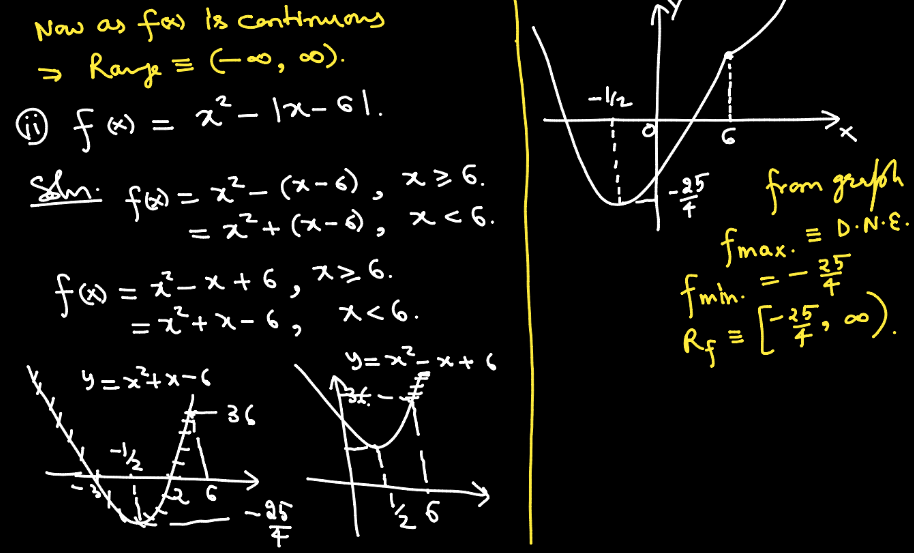 Now as f(x) is continuous
⇒ Range ≡ (-∞, ∞).
(ii) f(x) = x² - |x-6|.
Soln. f(x) = x² - (x-6), x ≥ 6.
= x² + (x-6), x < 6.
f(x) = x² - x + 6, x ≥ 6.
= x² + x - 6, x < 6.
y = x² + x - 6
36
-1/2
-3
2
6
-25/4
y = x² - x + 6
36
1/2
6
y
-1/2
0
6
x
-25/4
from graph
fmax. ≡ D.N.E.
fmin. = -25/4
Rf ≡ [-25/4, ∞).